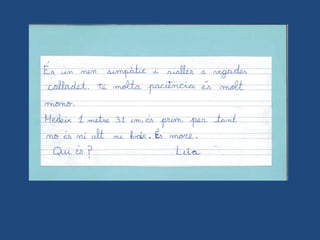 És un nen simpàtic i rialler a vegades
calladet. té molta paciència és molt
mono.
Medeix 1 metre 31 cm, és prim per tant
no és ni alt ni baix. És more.
Qui és? Luia